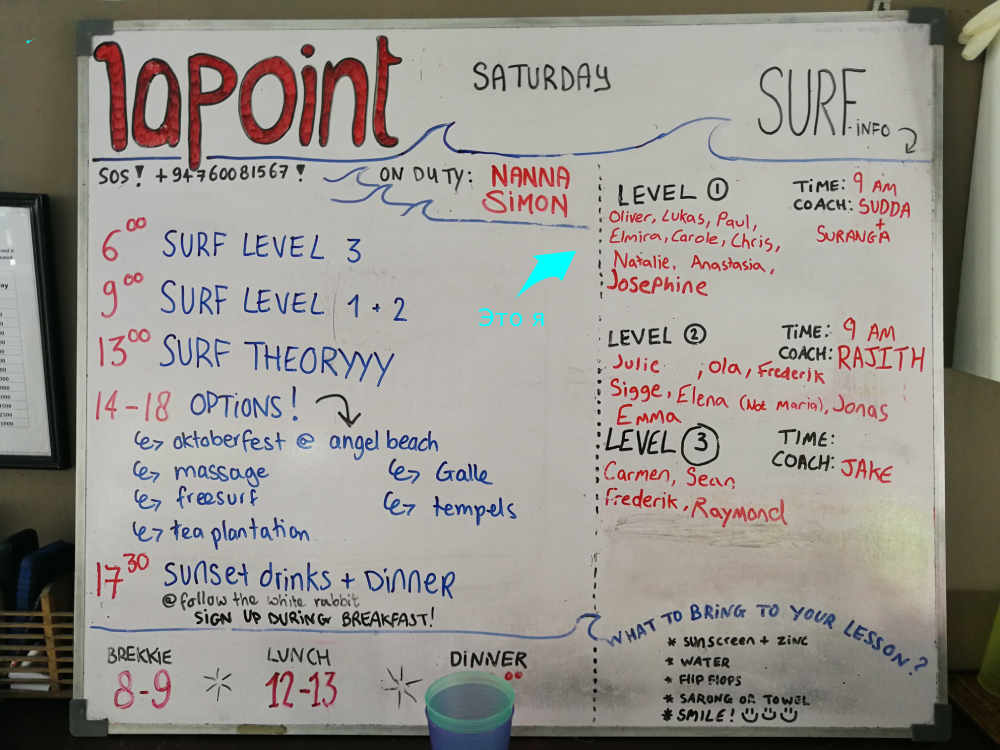 lapoint
SATURDAY
SURF INFO
SOS! +94760081567!
ON DUTY: NANNA
SIMON
6⁰⁰ SURF LEVEL 3
9⁰⁰ SURF LEVEL 1 + 2
13⁰⁰ SURF THEORYYY
14-18 OPTIONS!
oktoberfest @ angel beach
massage
Galle
freesurf
tempels
tea plantation
17³⁰ sunset drinks + DINNER
@follow the white rabbit
SIGN UP DURING BREAKFAST!
BREKKIE
8-9
LUNCH
12-13
DINNER
Это я
LEVEL ①
TIME: 9 AM
COACH: SUDDA
+
SURANGA
Oliver, Lukas, Paul,
Elmira, Carole, Chris,
Natalie, Anastasia,
Josephine
LEVEL ②
TIME: 9 AM
COACH: RAJITH
Julie , Ola, Frederik
Sigge, Elena (Not Maria), Jonas
Emma
LEVEL ③
TIME:
COACH: JAKE
Carmen, Sean,
Frederik, Raymond
WHAT TO BRING TO YOUR LESSON?
* SUNSCREEN + ZINC
* WATER
* FLIP FLOPS
* SARONG OR TOWEL
* SMILE!